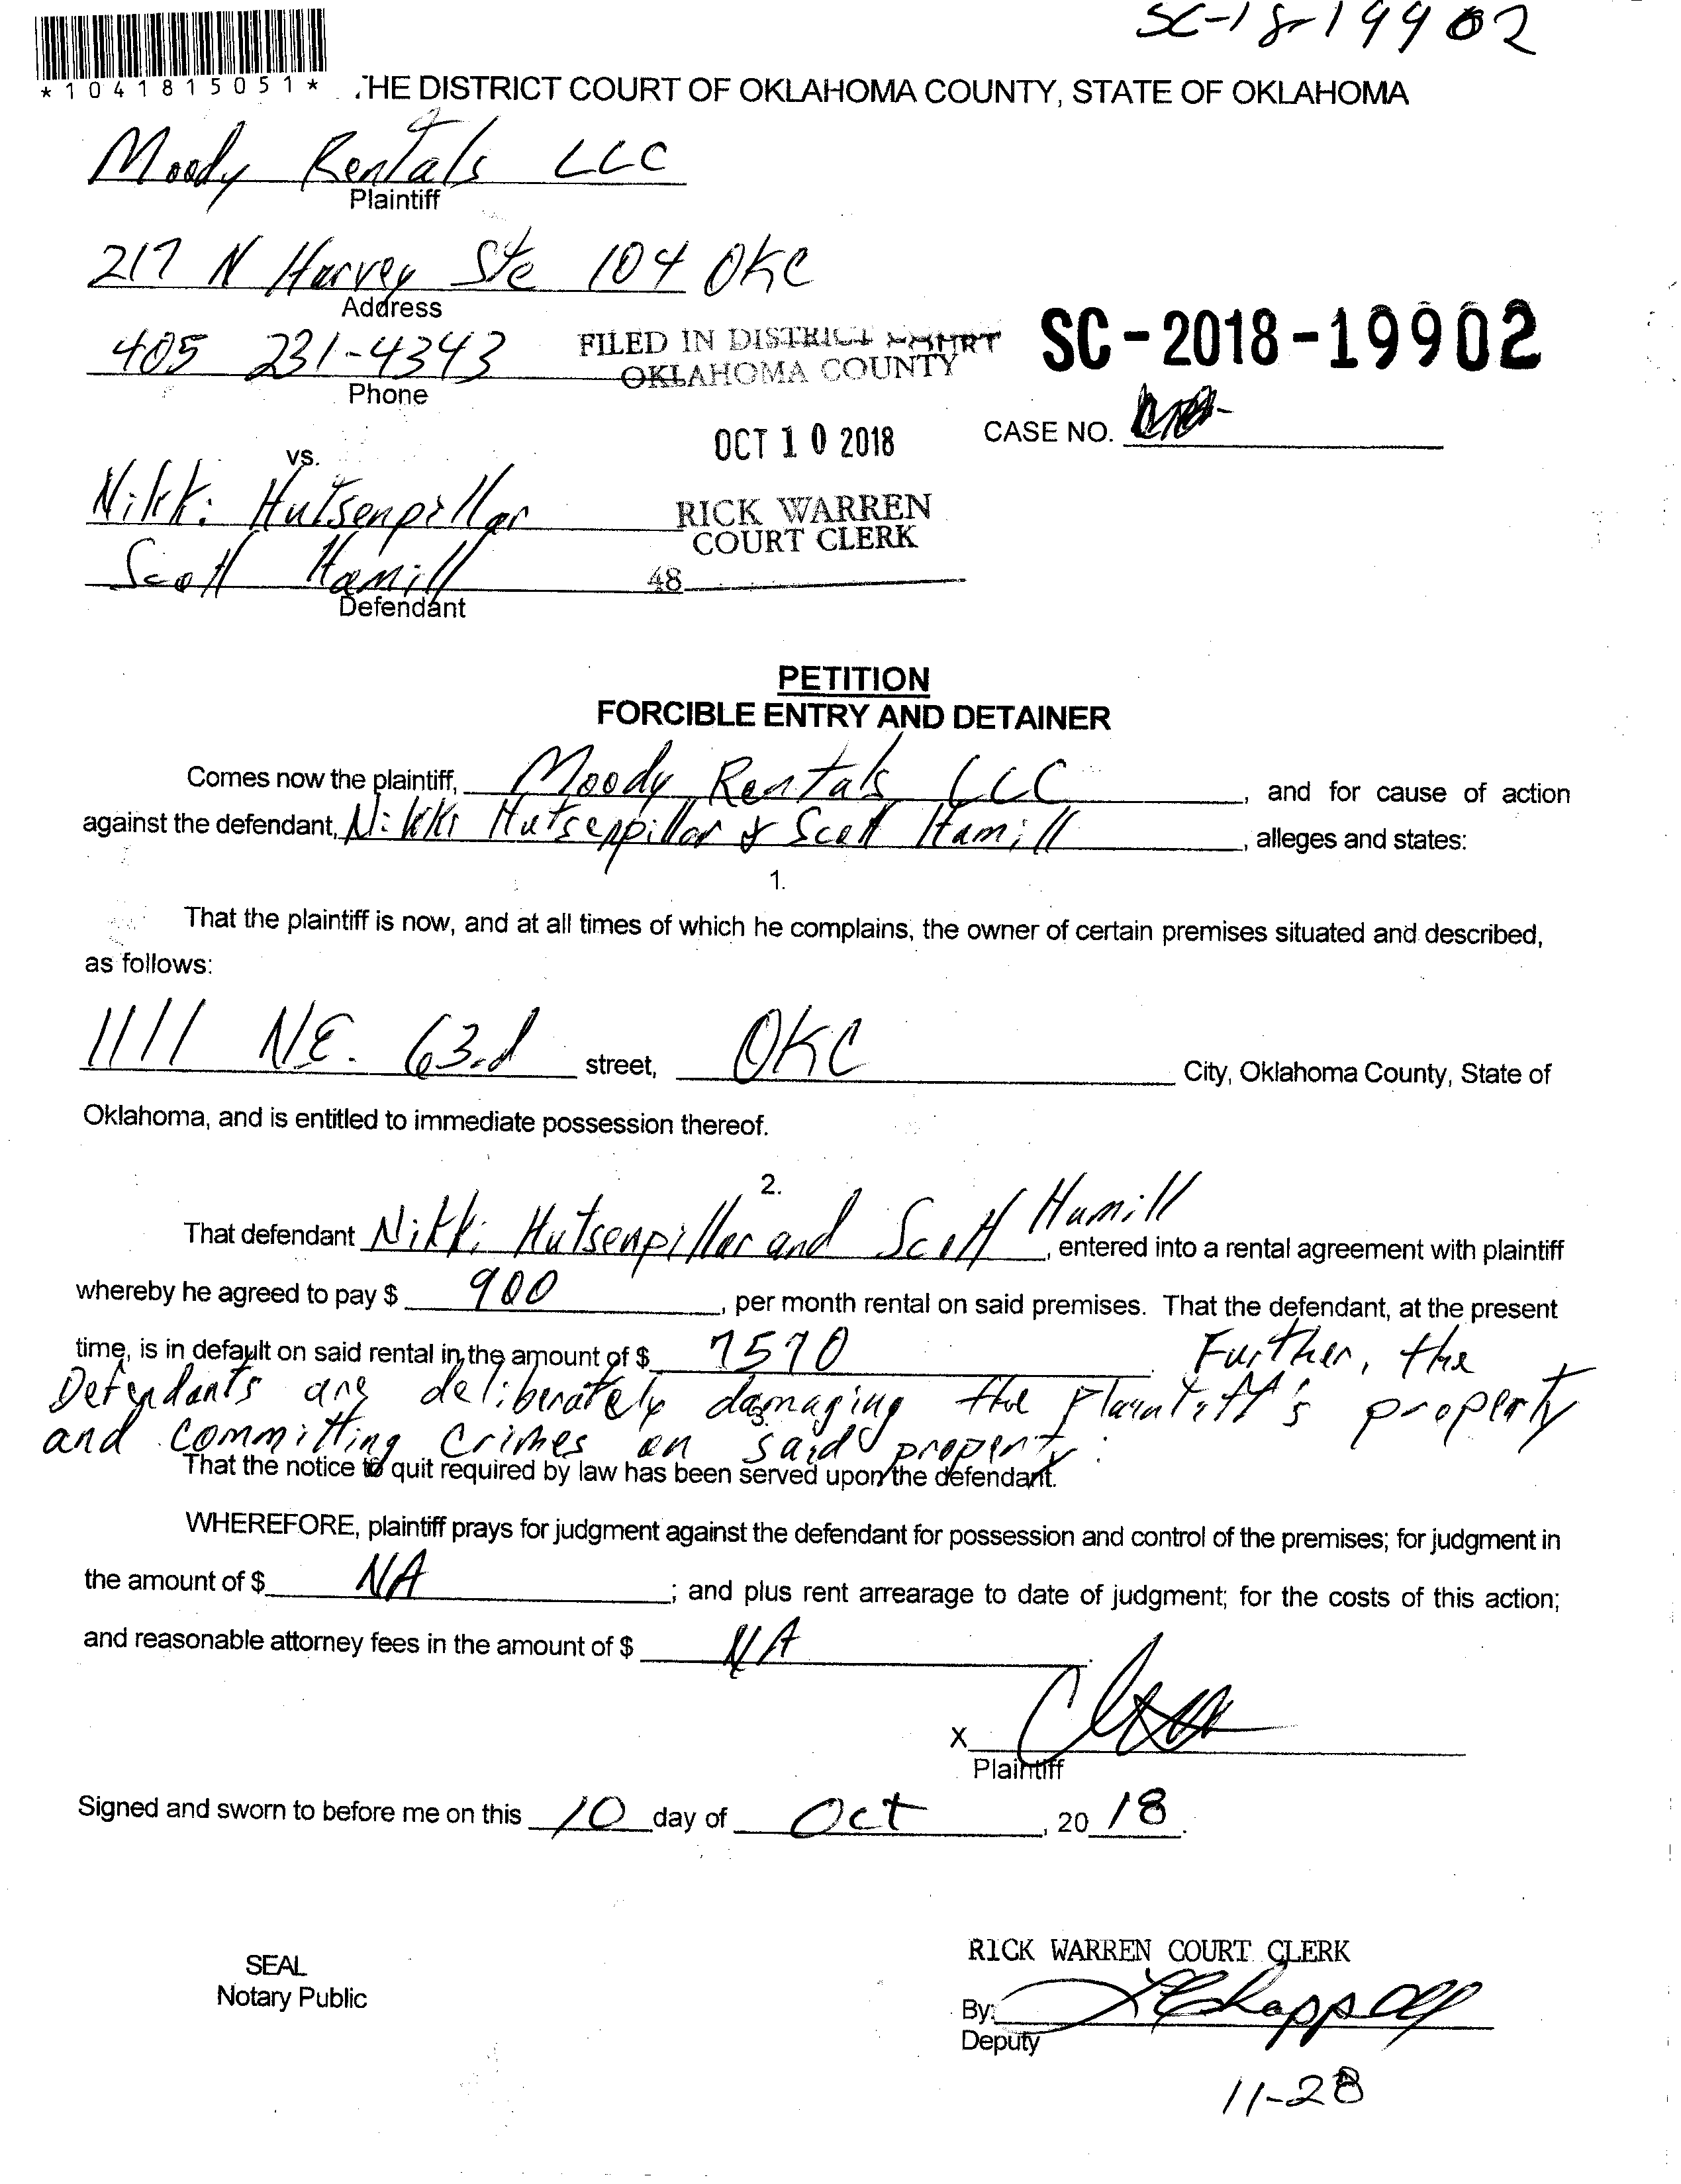 SC-18-19902
*1041815051*
THE DISTRICT COURT OF OKLAHOMA COUNTY, STATE OF OKLAHOMA
Moody Rentals LLC
Plaintiff
217 N Harvey Ste 104 OKC
Address
405 231-4343
Phone
FILED IN DISTRICT COURT
OKLAHOMA COUNTY
SC-2018-19902
OCT 10 2018
CASE NO.
vs.
Nikki Hutsenpillar
RICK WARREN
COURT CLERK
Scott Hamill
48
Defendant
PETITION
FORCIBLE ENTRY AND DETAINER
Comes now the plaintiff, Moody Rentals LLC, and for cause of action
against the defendant, Nikki Hutsenpillar & Scott Hamill, alleges and states:
1.
That the plaintiff is now, and at all times of which he complains, the owner of certain premises situated and described,
as follows:
1111 NE. 63rd street, OKC City, Oklahoma County, State of
Oklahoma, and is entitled to immediate possession thereof.
2.
That defendant Nikki Hutsenpillar and Scott Hamill, entered into a rental agreement with plaintiff
whereby he agreed to pay $ 900, per month rental on said premises. That the defendant, at the present
time, is in default on said rental in the amount of $ 7570. Further, the
Defendants are deliberately damaging the Plaintiff's property
and committing crimes on said property.
3.
That the notice to quit required by law has been served upon the defendant.
WHEREFORE, plaintiff prays for judgment against the defendant for possession and control of the premises; for judgment in
the amount of $ NA; and plus rent arrearage to date of judgment; for the costs of this action;
and reasonable attorney fees in the amount of $ NA.
X
Plaintiff
Signed and sworn to before me on this 10 day of Oct, 20 18.
SEAL
Notary Public
RICK WARREN COURT CLERK
By:
Deputy
11-28